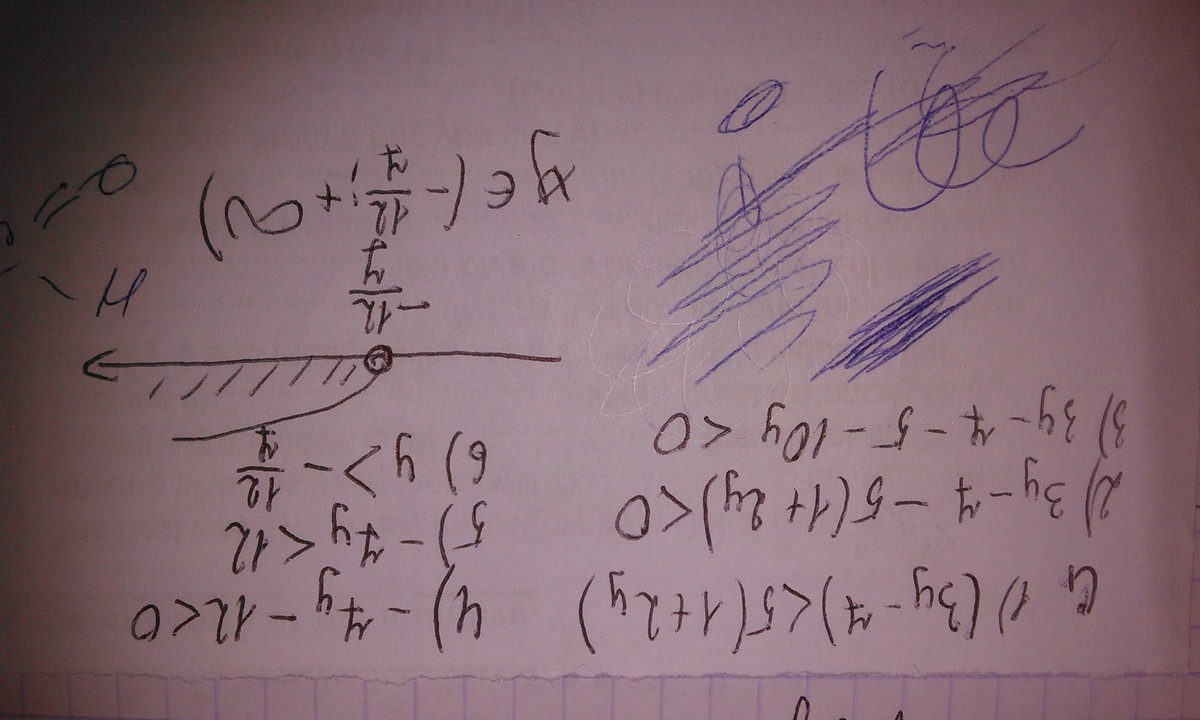 a 1) (3y-7)<5(1+2y)
2) 3y-7-5(1+2y)<0
3) 3y-7-5-10y<0
4) -7y-12<0
5) -7y<12
6) y>-12/7
-12/7
y∈(-12/7; +∞)